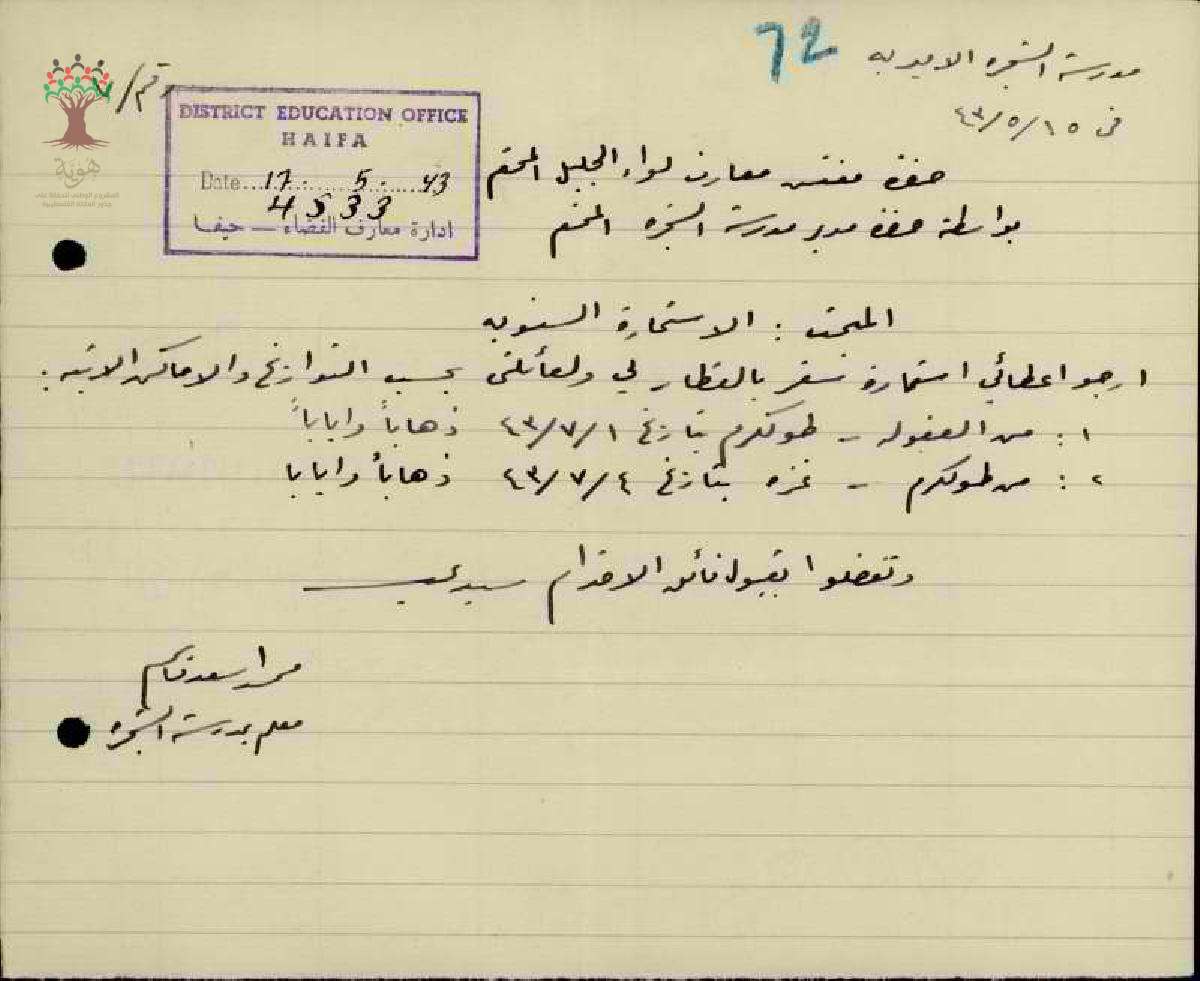 72
مدرسة الشجره الاميريه
في ١٥/٥/٤٣
رقم/٧
DISTRICT EDUCATION OFFICE
HAIFA
Date 17. 5. 43
4533
ادارة معارف القضاء — حيفا
حضرة مفتش معارف لواء الجليل المحترم
بواسطة حضرة مدير مدرسة الشجره المحترم
المبحث : الاستمارة السنويه
ارجو اعطائي استمارة سفر بالقطار لي ولعائلتي بحسب التواريخ والاماكن الاتيه :
١ : من العفوله - طولكرم بتاريخ ٤٣/٧/١ ذهاباً واياباً
٢ : من طولكرم - غزه بتاريخ ٤٣/٧/٤ ذهاباً وايابا
وتفضلوا بقبول فائق الاحترام سيدي
محمد اسعد قاسم
معلم بمدرسة الشجره
هوية
المشروع الوطني للحفاظ على
جذور العائلة الفلسطينية